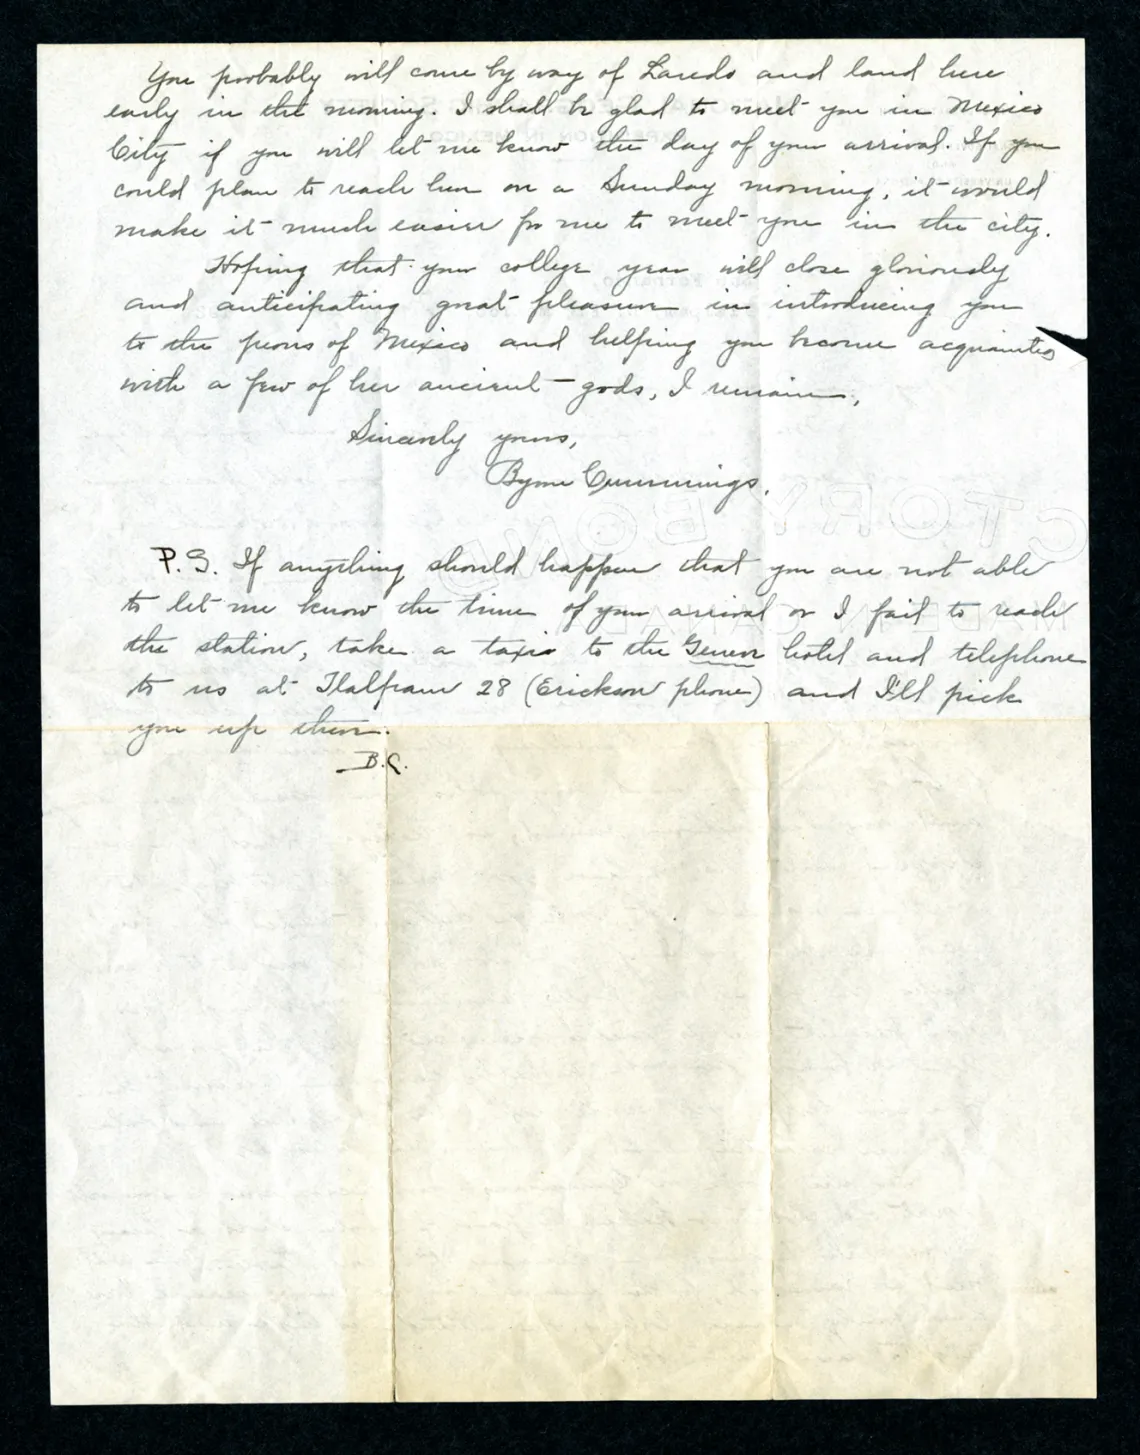 You probably will come by way of Laredo and land here
early in the morning. I shall be glad to meet you in Mexico
City if you will let me know the day of your arrival. If you
could plan to reach here on a Sunday morning, it would
make it much easier for me to meet you in the city.
Hoping that your college year will close gloriously
and anticipating great pleasure in introducing you
to the peons of Mexico and helping you become acquainted
with a few of her ancient gods, I remain,
Sincerely yours,
Byron Cummings.
P.S. If anything should happen that you are not able
to let me know the time of your arrival or I fail to reach
the station, take a taxi to the Geneve hotel and telephone
to us at Tlalpam 28 (Erickson phone) and I'll pick
you up there.
B.C.
VICTORY BOND
MADE IN CANADA